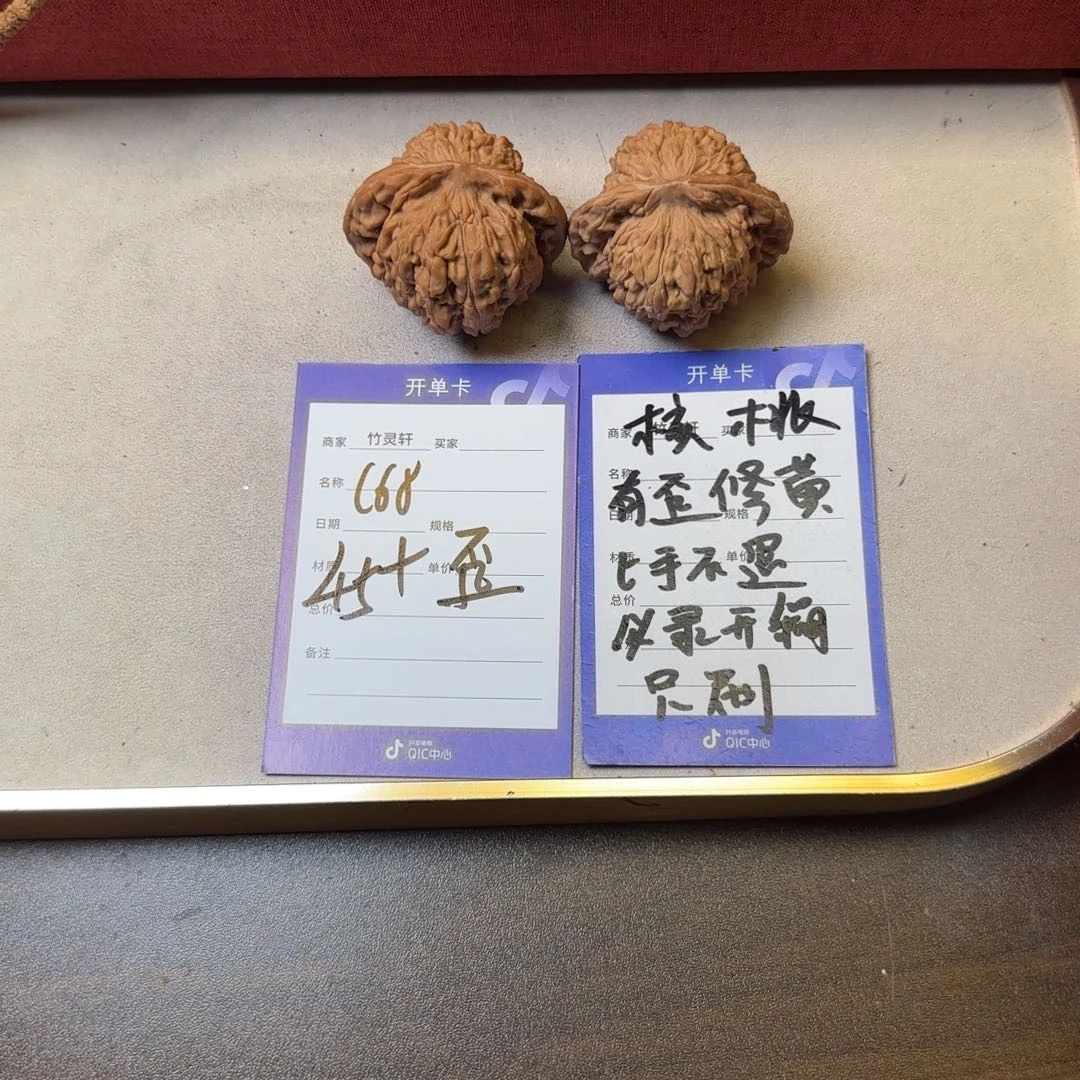 开单卡
商家 竹灵轩 买家
名称 668
日期 规格
材质 单价
45+ 歪
总价
备注
抖音电商
QIC中心
开单卡
商家 买家
核桃
名称
有歪修黄
日期 规格
材质 单价
上手不退
总价
以录开辆
只刷
抖音电商
QIC中心